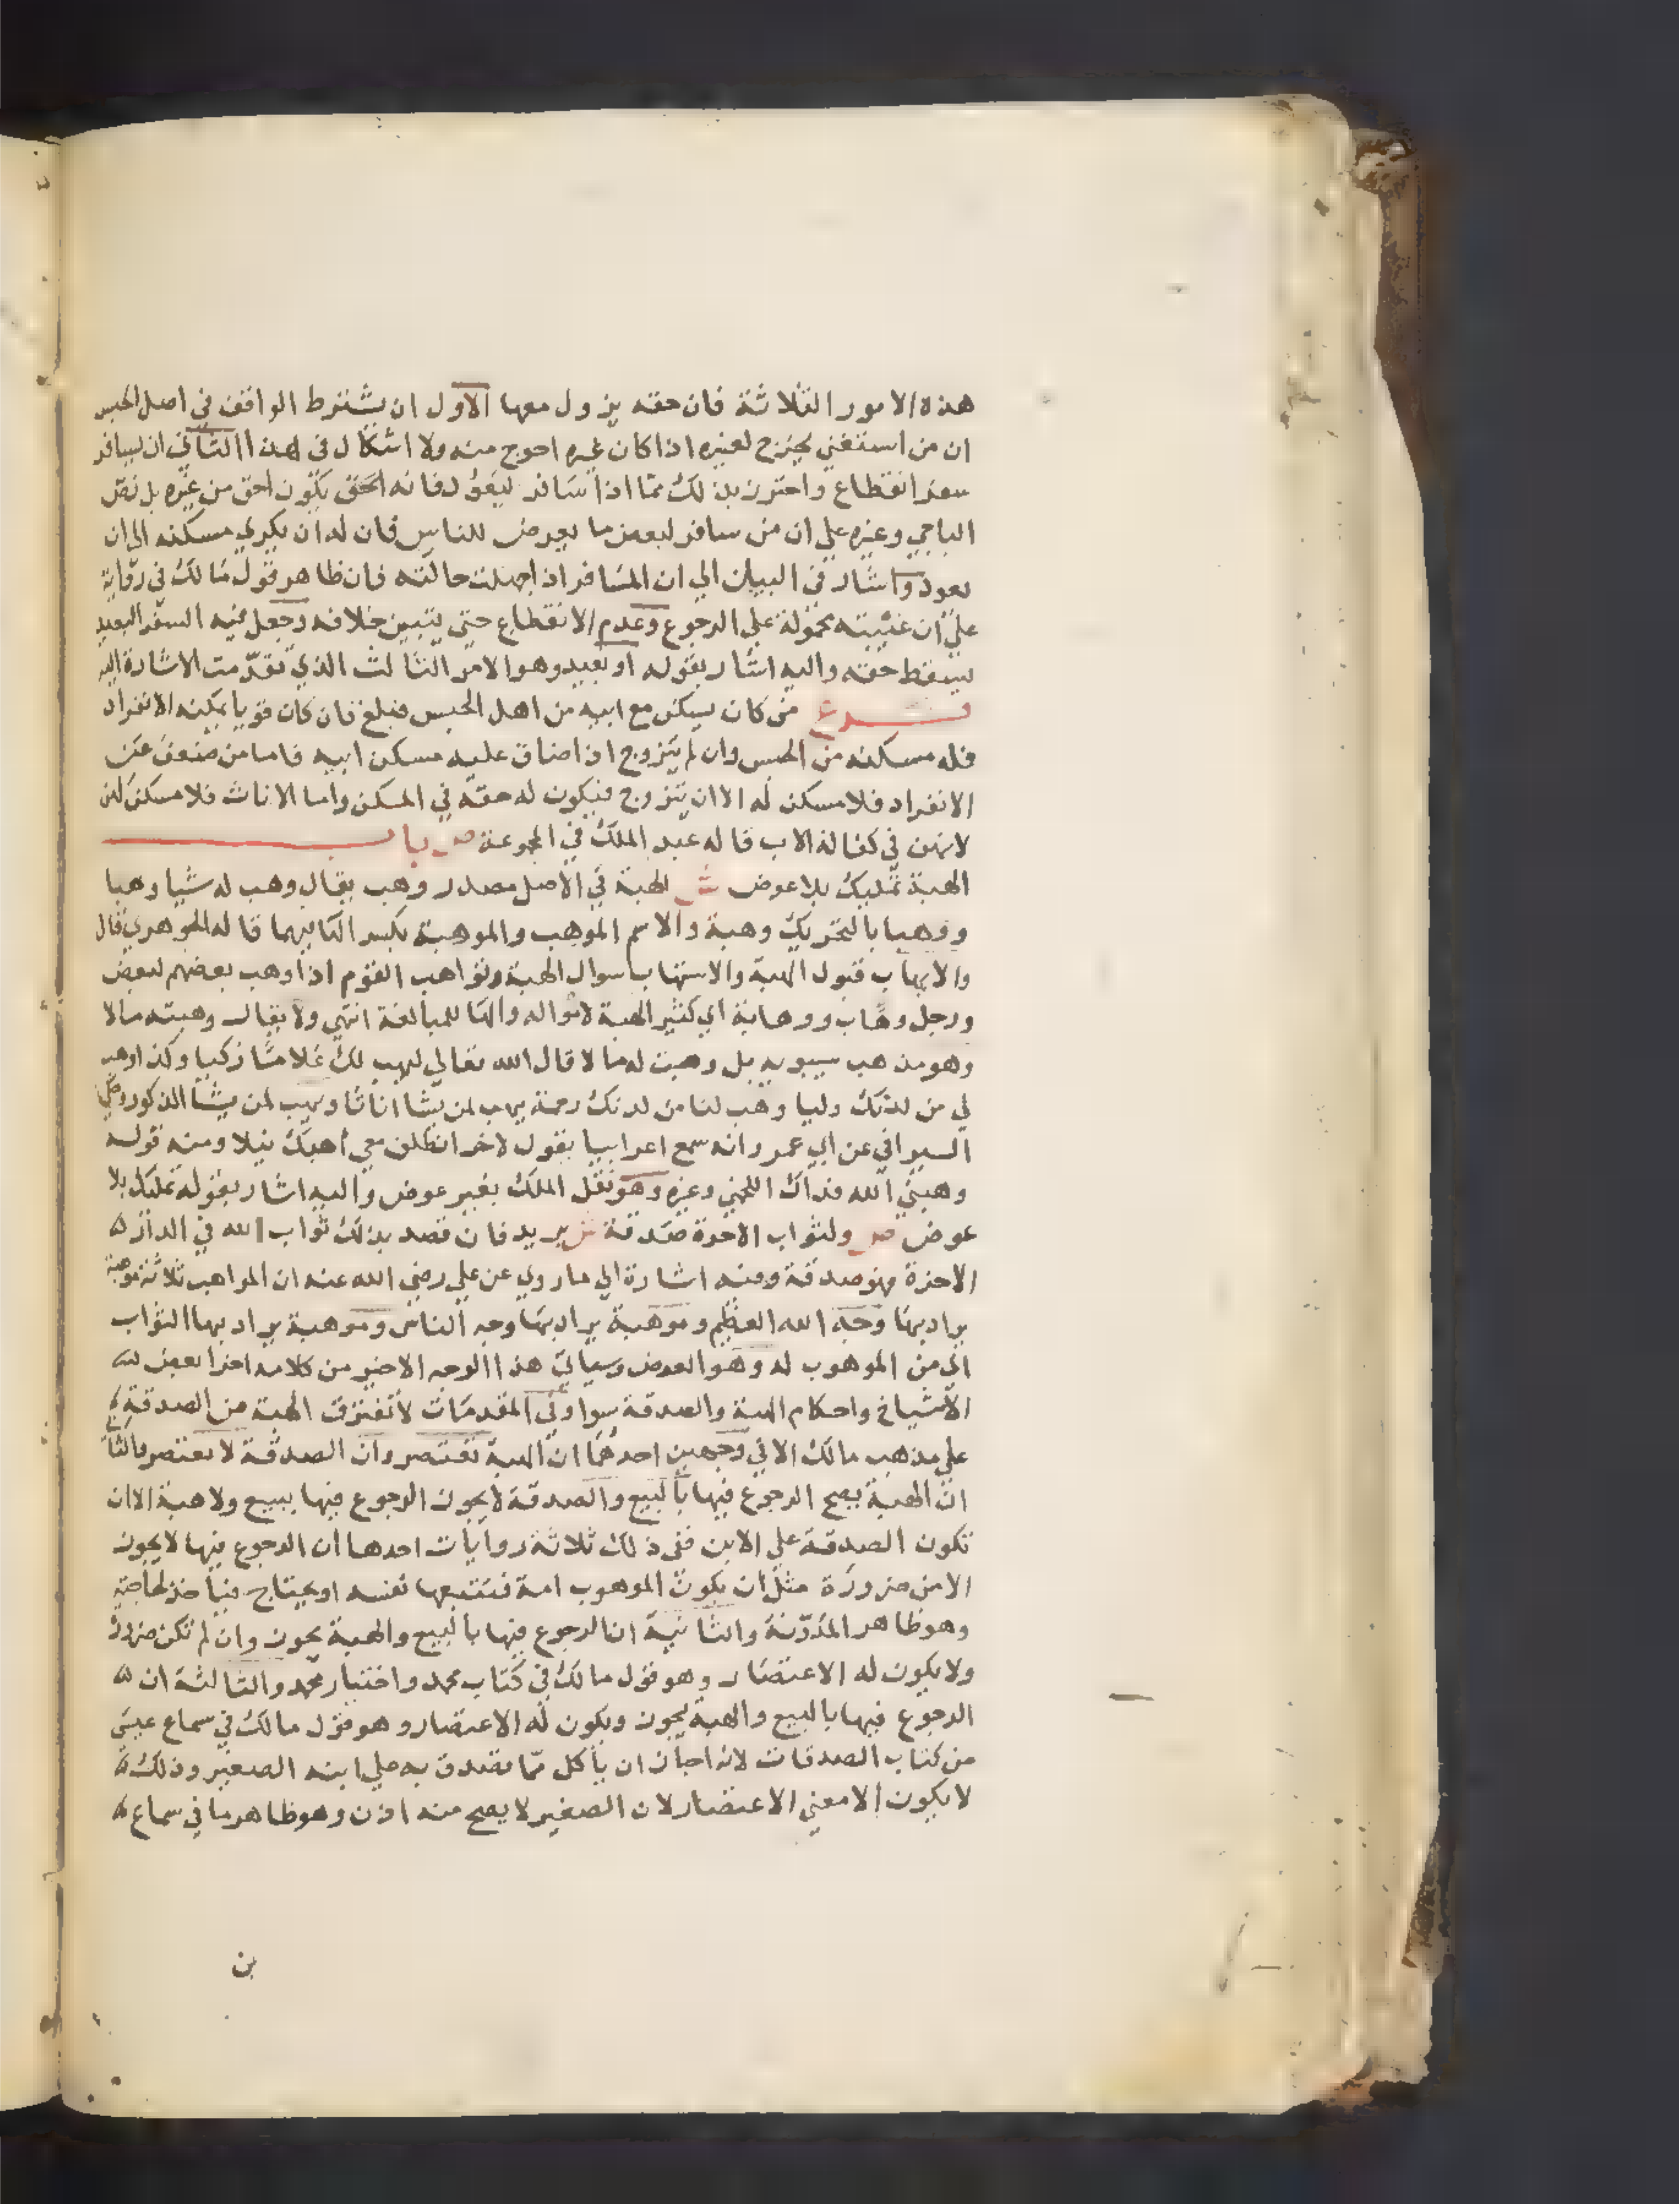 هذه الامور الثلاثة فان حقه يزول معها الاول ان يشترط الواقف في اصل الحبس
ان من استغني يخرج لغيره اذا كان غيره احوج منه ولا اشكال في هذا الثاني ان يسافر
سفر انقطاع واحترز بذلك مما اذا سافر ليعود فانه الحق يكون احق من غيره بل نص
الباجي وغيره علي ان من سافر لبعض ما يعرض للناس فان له ان يكري مسكنه الي ان
يعود واشار في البيان الي ان المسافر اذا جهلت حالته فان ظاهر قول مالك في رواية
علي ان غيبته محمولة علي الرجوع وعدم الانقطاع حتي يتبين خلافه وجعل فيه السفر البعيد
يسقط حقه واليه اشار بقوله او بعيد وهو الامر الثالث الذي تقدمت الاشارة اليه
فرع من كان يسكن مع ابيه من اهل الحبس فبلغ فان كان قويا يمكنه الانفراد
فله مسكنه من الحبس وان لم يتزوج اذا ضاق عليه مسكن ابيه فاما من ضعف عن
الانفراد فلا مسكن له الا ان يتزوج فيكون له حقه في المسكن واما الاناث فلا مسكن لهن
لانهن في كفالة الاب قاله عبد الملك في المجموعة ص باب
الهبة تمليك بلا عوض ش الهبة في الاصل مصدر وهب يقال وهب له شيا وهبا
ووهبا بالتحريك وهبة والاسم الموهب والموهبة بكسر الها فيهما قاله الجوهري قال
والاتهاب قبول الهبة والاستيهاب سوال الهبة وتواهب القوم اذا وهب بعضهم لبعض
ورجل وهاب ووهابة اي كثير الهبة لامواله والها للمبالغة انتهي ولا يقال وهبته مالا
وهو مذهب سيبويه بل وهبت له مالا قال الله تعالي ليهب لك غلاما زكيا وكذا وهب
لي من لدنك وليا وهب لنا من لدنك رحمة يهب لمن يشا اناثا ويهب لمن يشا الذكور وحكي
السيرافي عن ابي عمر وانه سمع اعرابيا يقول لاخر انطلق معي اهبك نبلا ومنه قوله
وهبني الله فداك اللخمي وغيره وهو نقل الملك بغير عوض واليه اشار بقوله تمليك بلا
عوض ص ولثواب الاخرة صدقة ش يريد فان قصد بذلك ثواب الله في الدار
الاخرة فهو صدقة وفيه اشارة الي ما روي عن علي رضي الله عنه ان المواهب ثلاثة موهبة
يراد بها وجه الله العظيم وموهبة يراد بها وجه الناس وموهبة يراد بها الثواب
اي من الموهوب له وهو العوض وسياتي هذا الوجه الاخير من كلامه اخرا بعض
الاشياخ واحكام الهبة والصدقة سوا وفي المقدمات لا تفترق الهبة من الصدقة
علي مذهب مالك الا في وجهين احدهما ان الهبة تعتصر وان الصدقة لا تعتصر والثاني
ان الهبة يصح الرجوع فيها بالبيع والصدقة لا يجوز الرجوع فيها ببيع ولا هبة الا ان
تكون الصدقة علي الابن ففي ذلك ثلاثة روايات احدها ان الرجوع فيها لا يجوز
الا من ضرورة مثل ان يكون الموهوب امة فتتبعها نفسه او يحتاج فياخذ لحاجته
وهو ظاهر المدونة والثانية ان الرجوع فيها بالبيع والهبة يجوز وان لم تكن ضرورة
ولا يكون له الاعتصار وهو قول مالك في كتاب محمد واختيار محمد والثالثة ان
الرجوع فيها بالبيع والهبة يجوز ويكون له الاعتصار وهو قول مالك في سماع عيسي
من كتاب الصدقات لانه اجاز ان ياكل مما تصدق به علي ابنه الصغير وذلك
لا يكون الا معني الاعتصار لان الصغير لا يصح منه اذن وهو ظاهر ما في سماع
بن